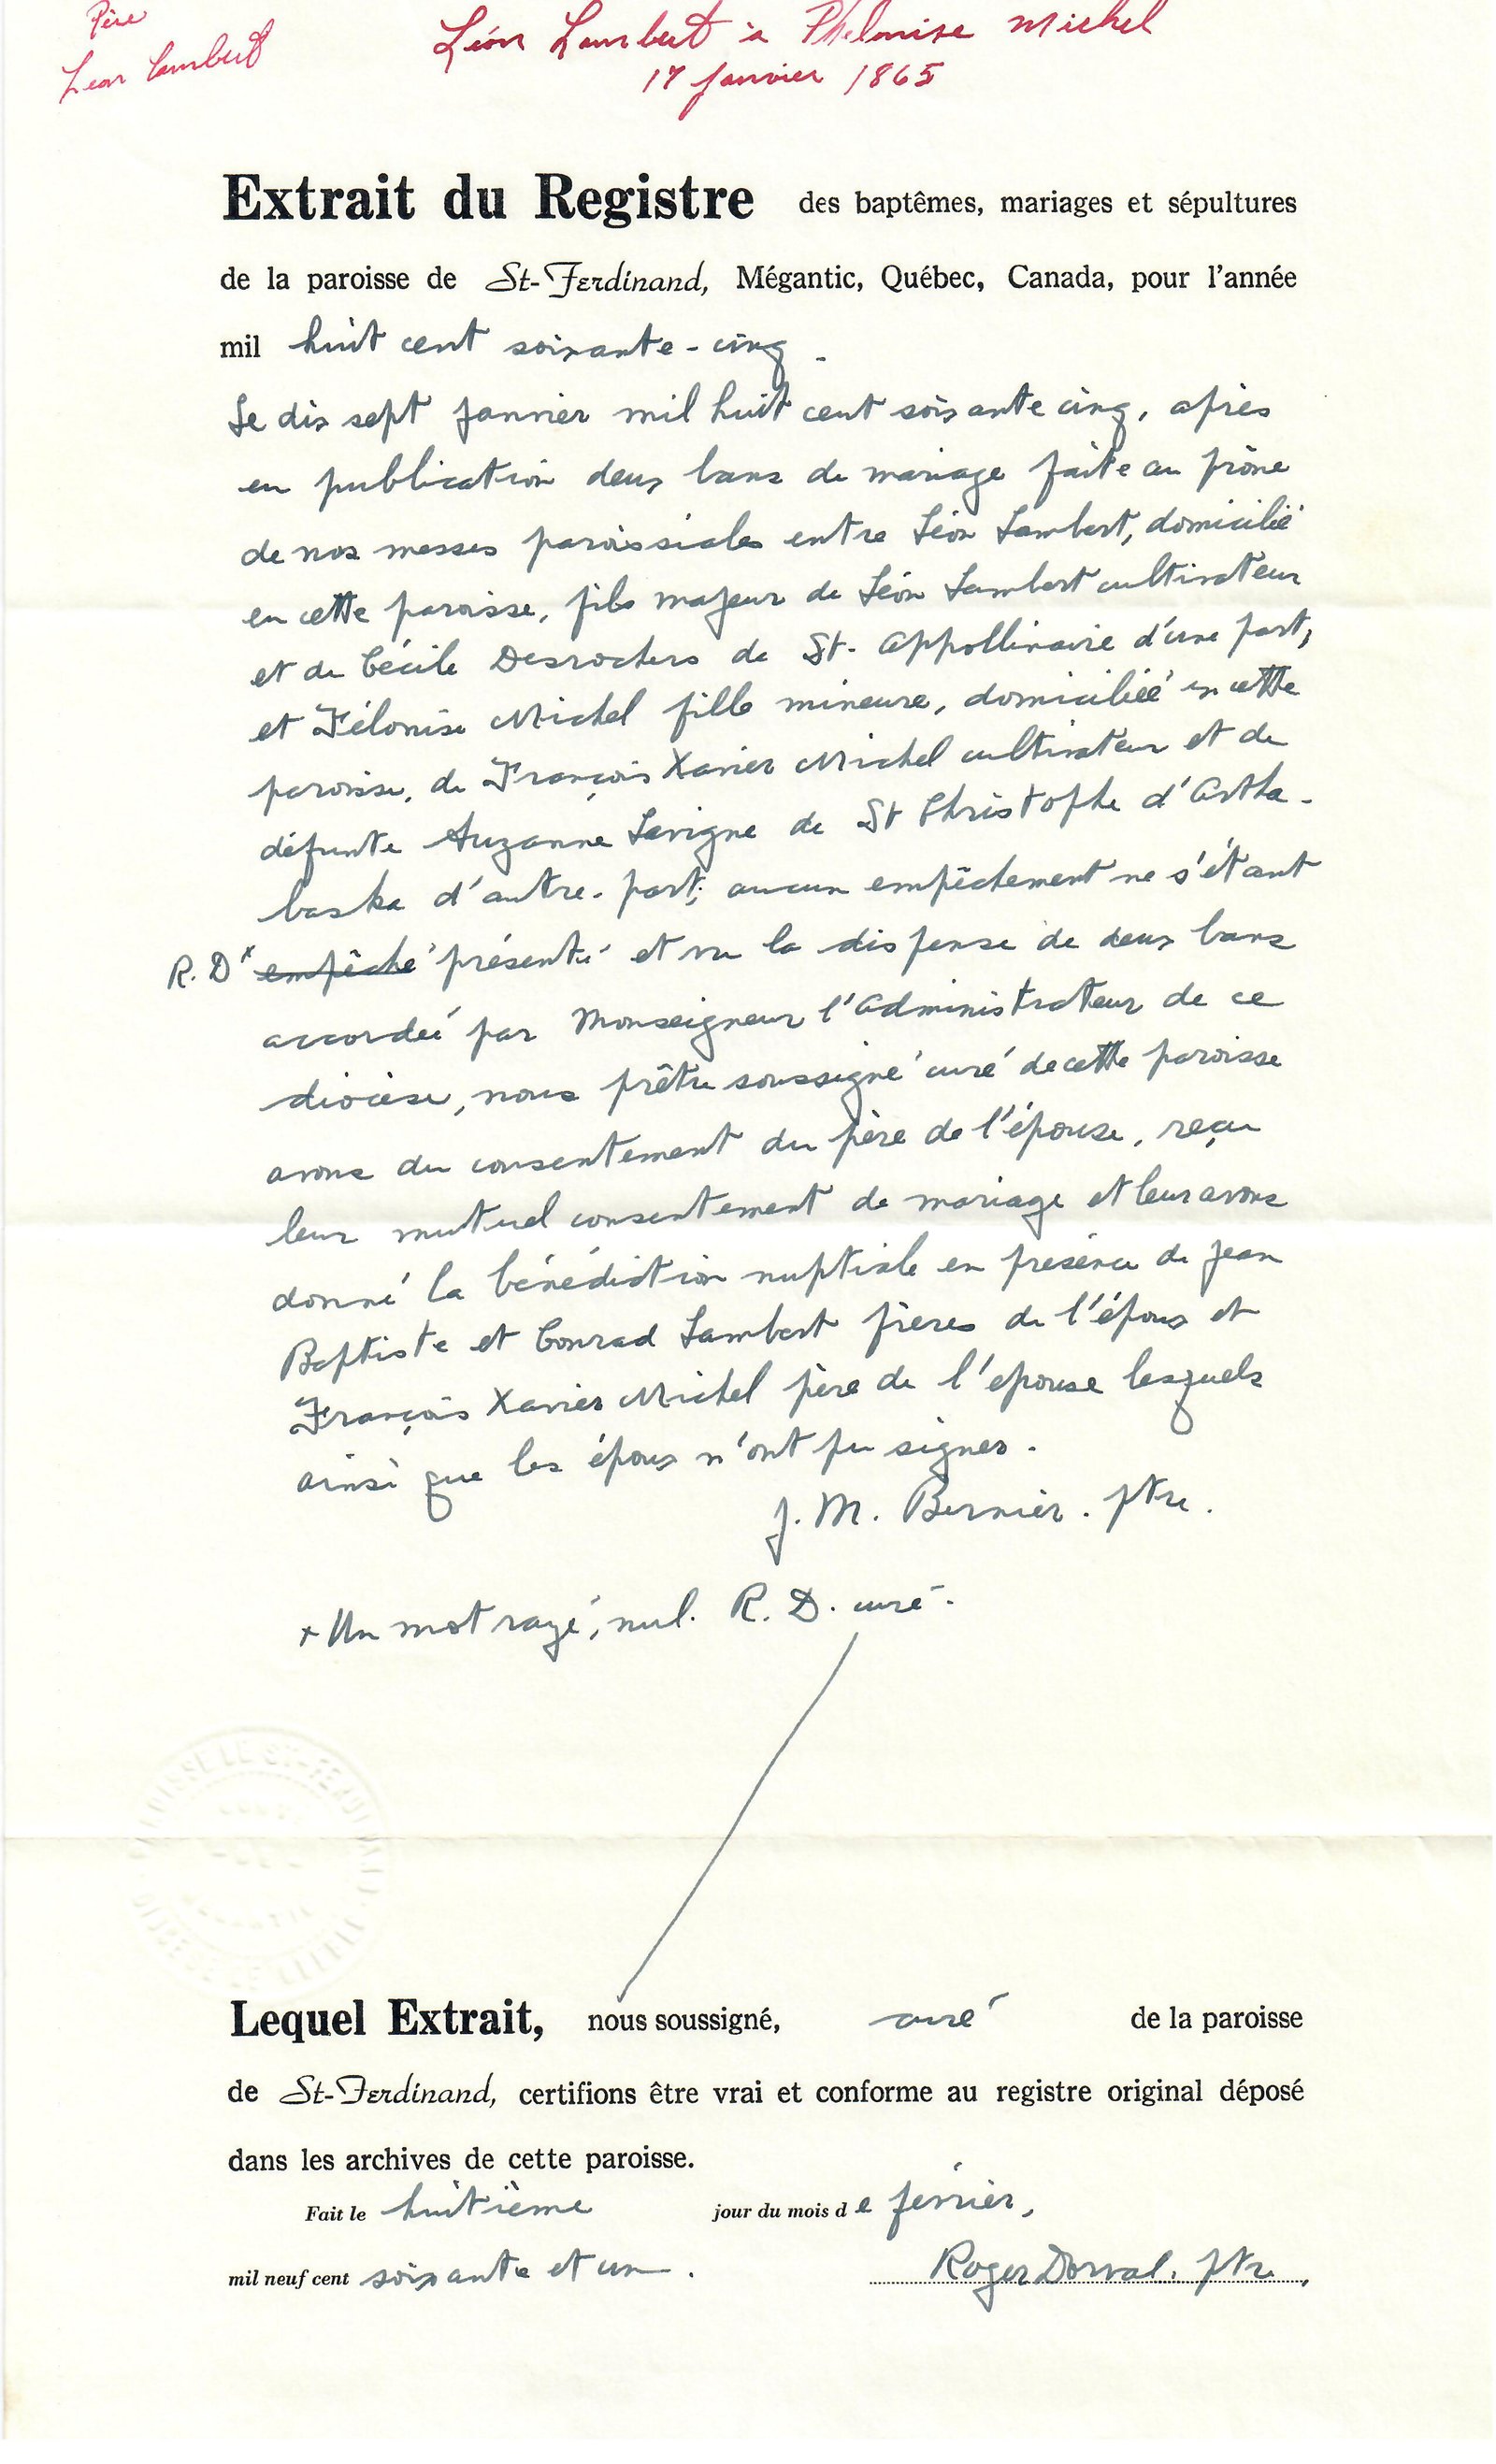 Père
Léon Lambert
Léon Lambert à Phelonise Michel
17 janvier 1865
Extrait du Registre des baptêmes, mariages et sépultures
de la paroisse de St-Ferdinand, Mégantic, Québec, Canada, pour l'année
mil huit cent soixante-cinq.
Le dix sept janvier mil huit cent soixante cinq, après
en publication deux bans de mariage faite au prône
de nos messes paroissiales entre Léon Lambert, domicilié
en cette paroisse, fils majeur de Léon Lambert cultivateur
et de Cécile Desrochers de St. Appollinaire d'une part,
et Félonise Michel fille mineure, domiciliée en cette
paroisse, de François Xavier Michel cultivateur et de
défunte Suzanne Lavigne de St Christophe d'Artha-
baska d'autre-part; aucun empêchement ne s'étant
R. D x empêché présenté et vu la dispense de deux bans
accordée par Monseigneur l'Administrateur de ce
diocèse, nous prêtre soussigné curé de cette paroisse
avons du consentement du père de l'épouse, reçu
leur mutuel consentement de mariage et leur avons
donné la bénédiction nuptiale en présence de Jean
Baptiste et Conrad Lambert frères de l'époux et
François Xavier Michel père de l'epouse lesquels
ainsi que les époux n'ont pu signer.
J. M. Bernier. ptre.
+ Un mot rayé, nul. R. D. curé.
Lequel Extrait, nous soussigné, curé de la paroisse
de St-Ferdinand, certifions être vrai et conforme au registre original déposé
dans les archives de cette paroisse.
Fait le huitième jour du mois de février,
mil neuf cent soixante et un. Roger Dorval, ptr.